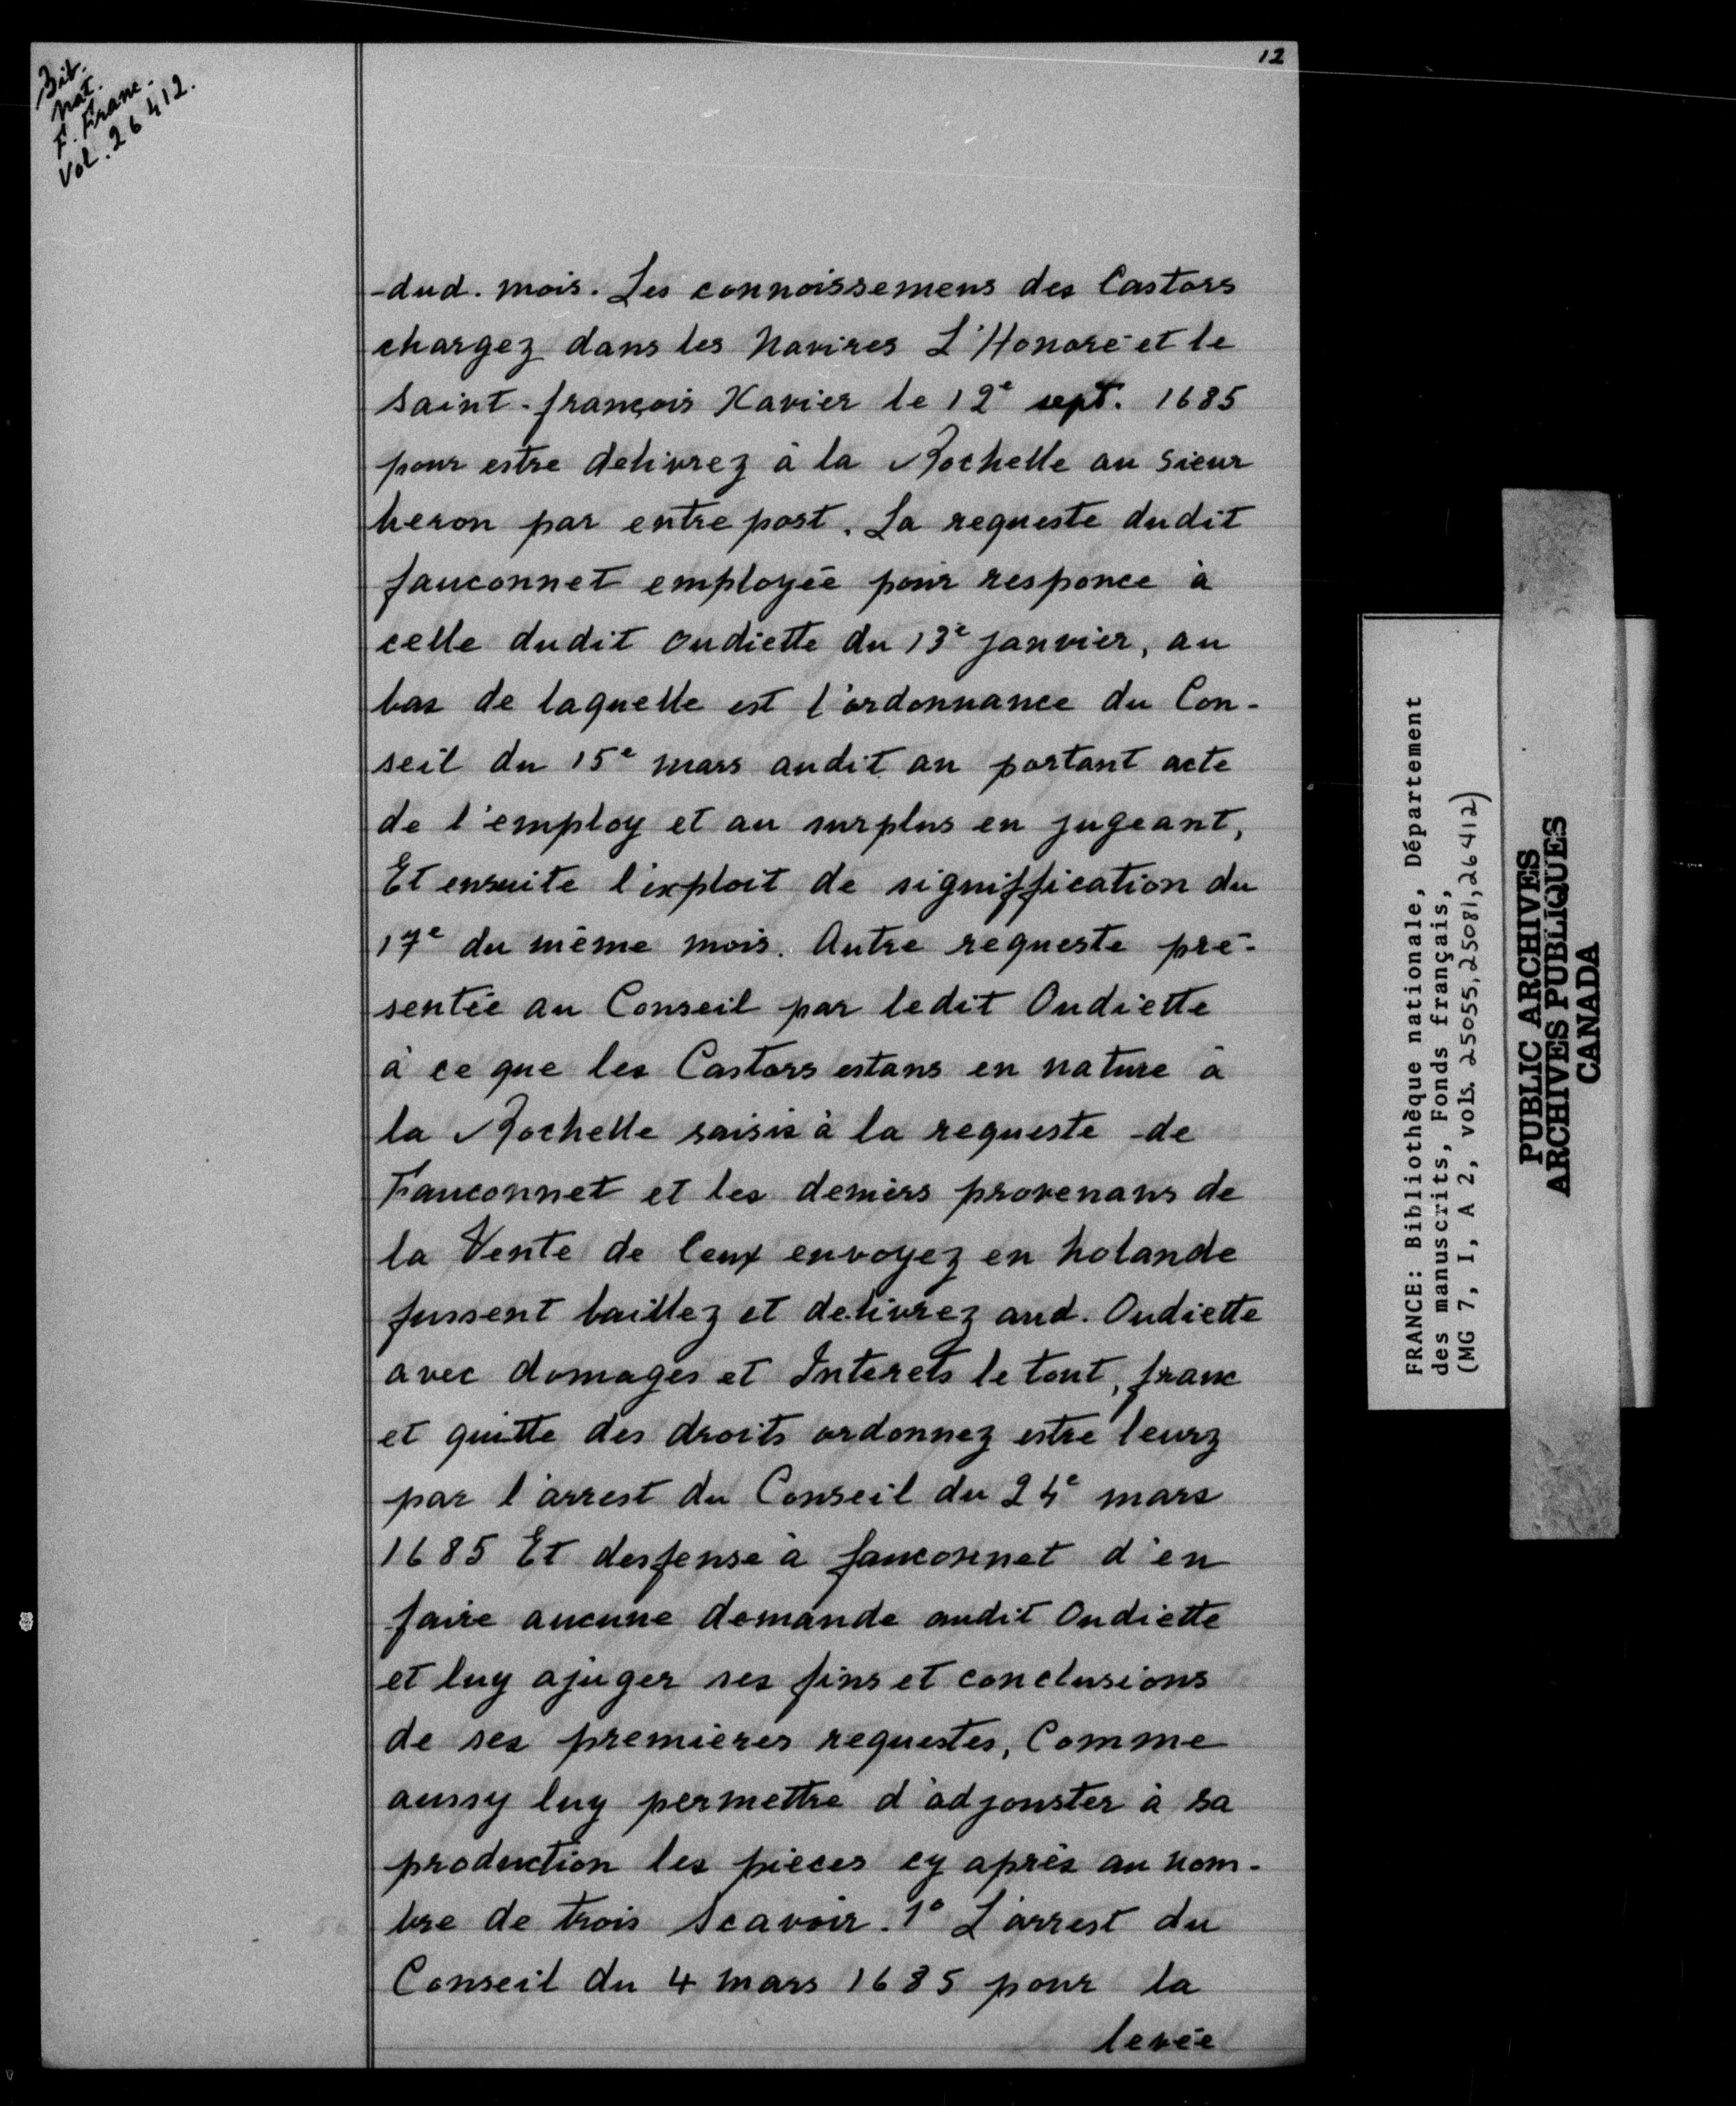 12
Bib.
Nat.
F. Franc.
Vol. 26412.
dud. mois. Les connoissemens des Castors
chargez dans les Navires L'Honoré et le
Saint-françois Xavier le 12e sept. 1685
pour estre delivrez à la Rochelle au Sieur
heron par entre post. La requeste dudit
fauconnet employée pour responce à
celle dudit Oudiette du 13e janvier, au
bas de laquelle est l'ordonnance du Con-
seil du 15e mars audit an portant acte
de l'employ et au surplus en jugeant,
Et ensuite l'exploit de signiffication du
17e du même mois. Autre requeste pré-
sentée au Conseil par ledit Oudiette
à ce que les Castors estans en nature à
la Rochelle saisis à la requeste de
Fauconnet et les deniers provenans de
la Vente de Ceux envoyez en holande
fussent baillez et delivrez aud. Oudiette
avec domages et Interets le tout, franc
et quitte des droits ordonnez estre leurz
par l'arrest du Conseil du 24e mars
1685 Et desfense à fauconnet d'en
faire aucune demande audit Oudiette
et luy ajuger ses fins et conclusions
de ses premières requestes, Comme
aussy luy permettre d'adjouster à sa
production les pièces cy après au nom-
bre de trois Scavoir. 1° L'arrest du
Conseil du 4 mars 1685 pour la
levée
FRANCE: Bibliothèque nationale, Département
des manuscrits, Fonds français,
(MG 7, I, A 2, vols. 25055, 25081, 26412)
PUBLIC ARCHIVES
ARCHIVES PUBLIQUES
CANADA